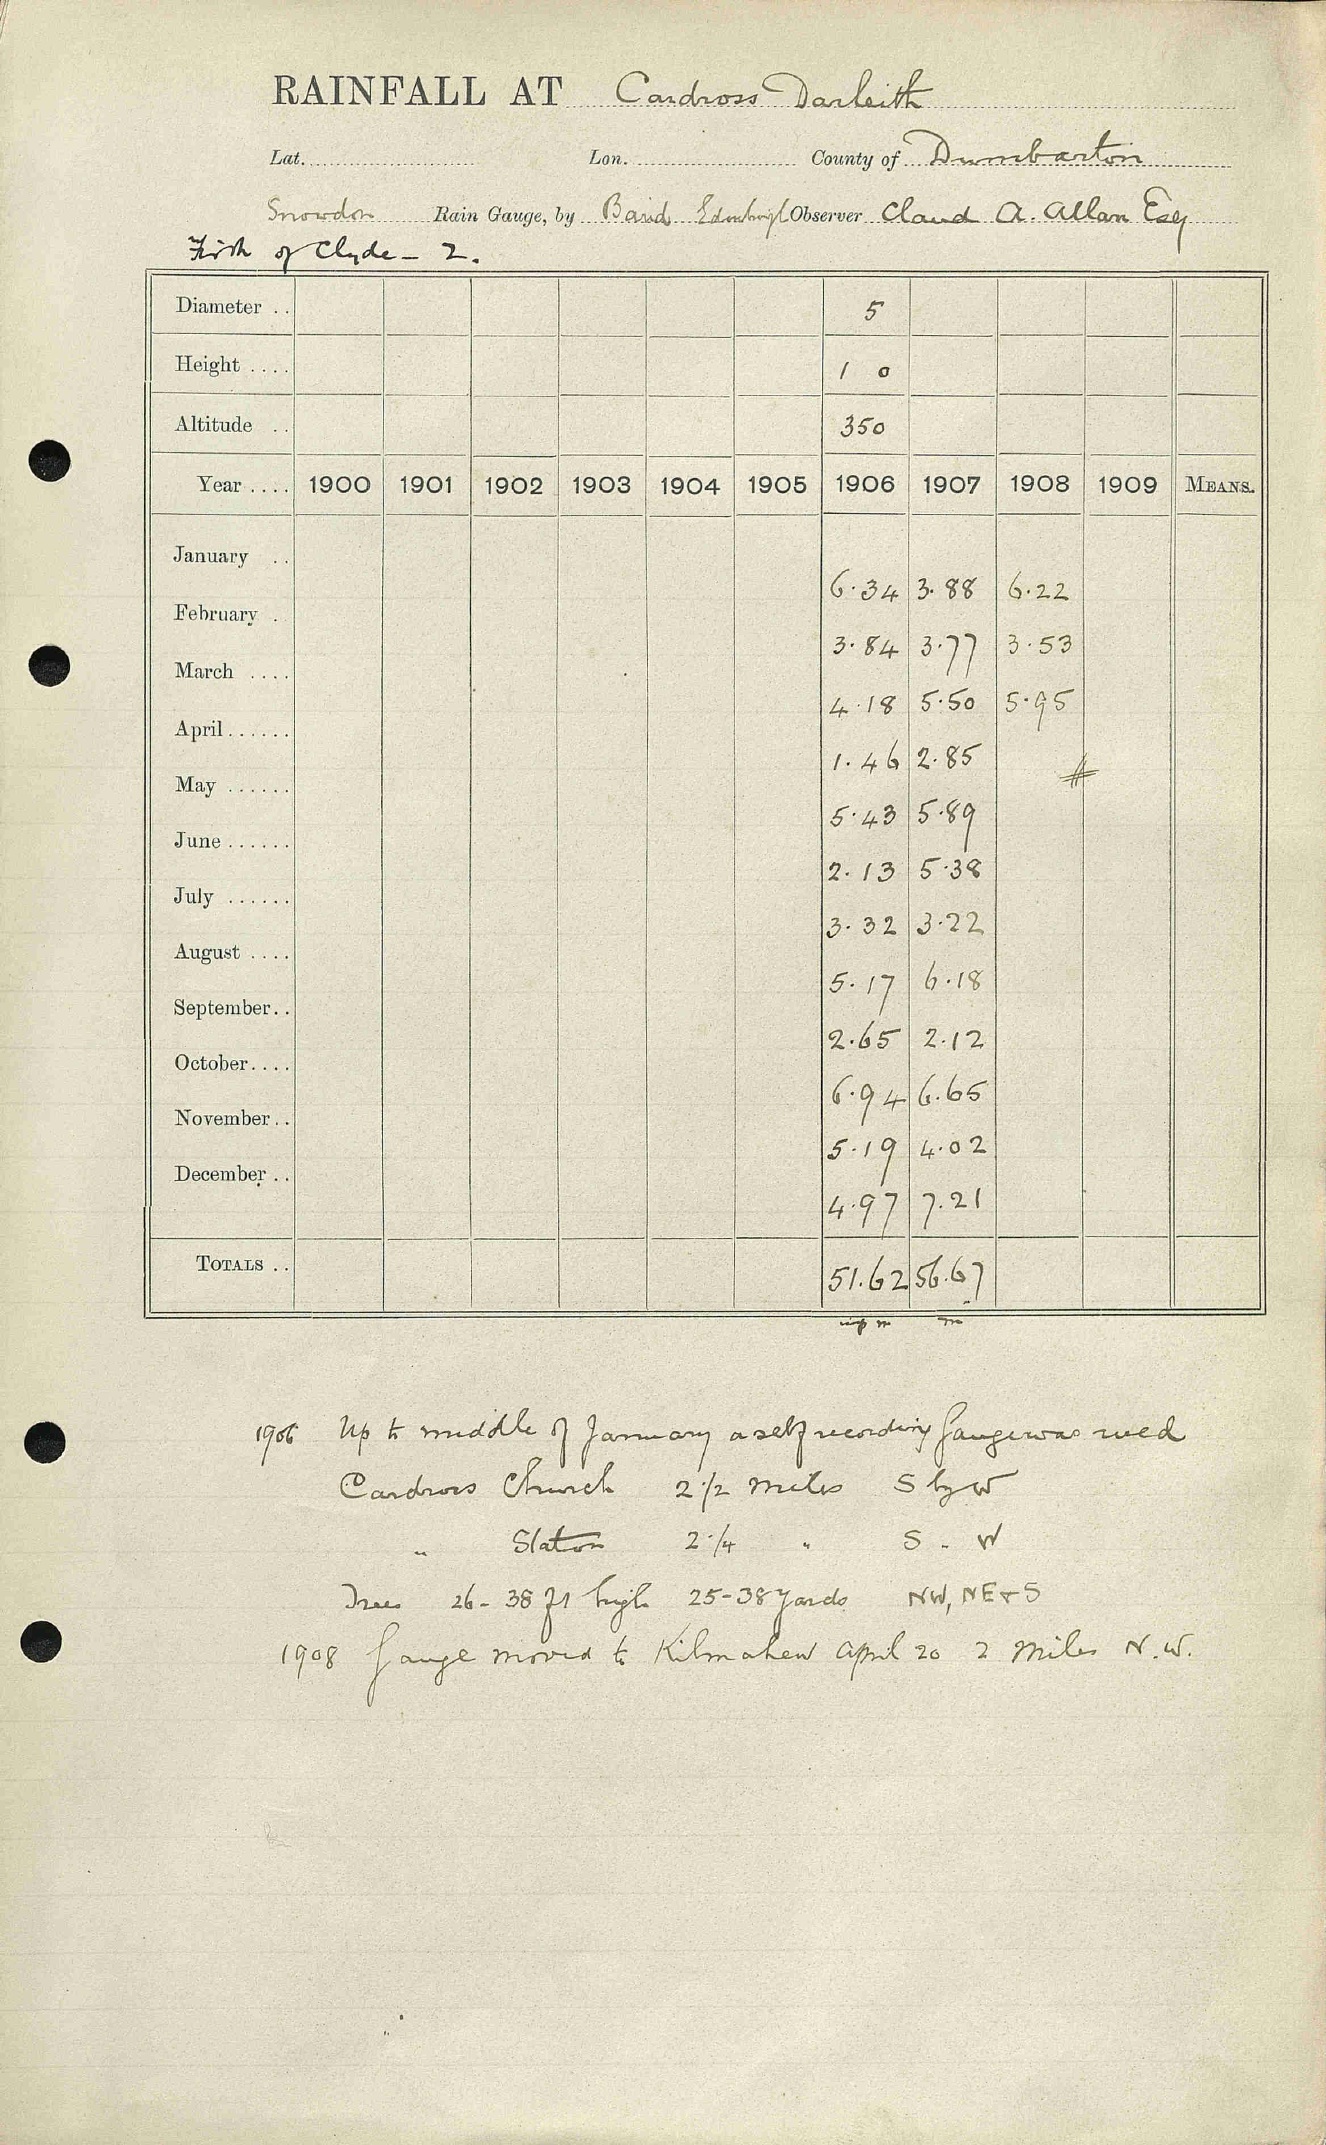 RAINFALL AT Cardross Darleith
Lat. Lon. County of Dumbarton
Snowdon Rain Gauge, by Baird Edinburgh Observer Claud A. Allan Esq
Firth of Clyde - 2.
Diameter .. 5
Height .... 1 0
Altitude .. 350
Year .... 1900 1901 1902 1903 1904 1905 1906 1907 1908 1909 MEANS.
January .. 6.34 3.88 6.22
February . 3.84 3.77 3.53
March .... 4.18 5.50 5.95
April ...... 1.46 2.85 #
May ...... 5.43 5.89
June ...... 2.13 5.38
July ...... 3.32 3.22
August .... 5.17 6.18
September .. 2.65 2.12
October .... 6.94 6.65
November .. 5.19 4.02
December .. 4.97 7.21
TOTALS .. 51.62 56.67
1906 Up to middle of January a self recording gauge was used
Cardross Church 2 1/2 miles S by W
" Station 2 1/4 " S . W
Trees 26-38 ft high 25-38 yards NW, NE + S
1908 Gauge moved to Kilmahew April 20 2 miles N.W.